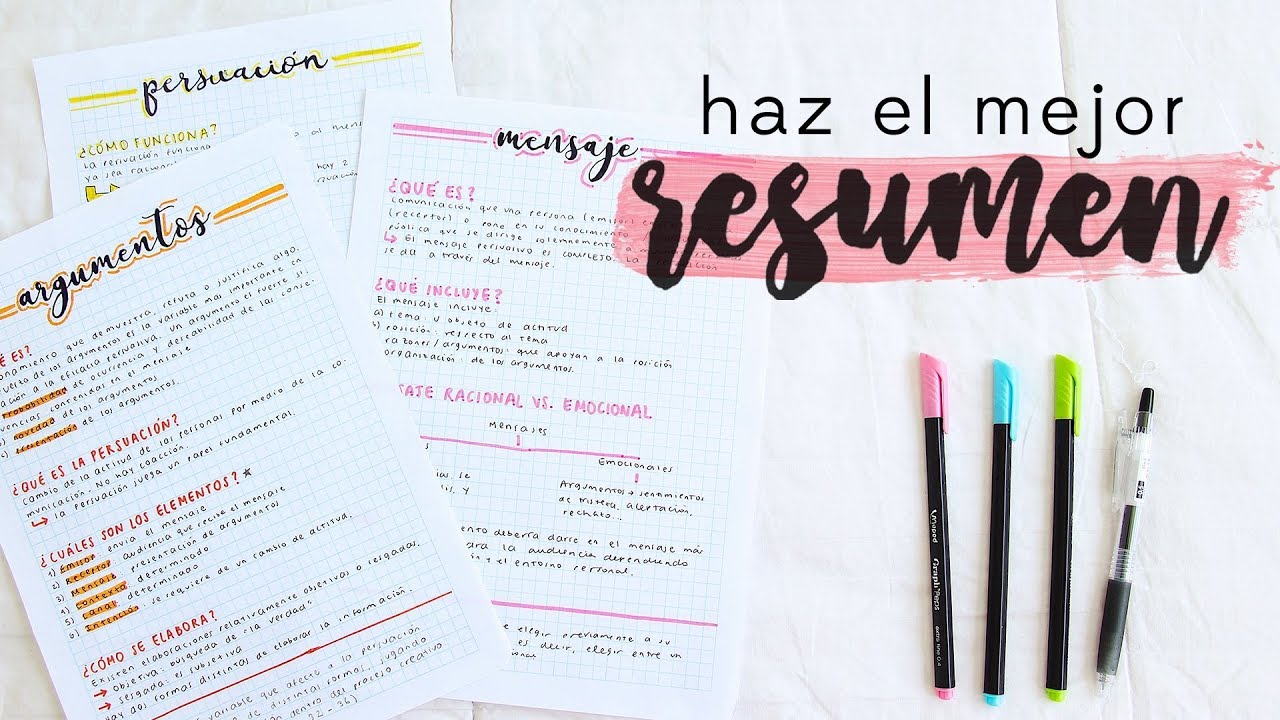 haz el mejor
resumen
persuación
¿CÓMO FUNCIONA?
La persuación funciona
ya sea racion
hay 2
mensaje
¿QUÉ ES?
comunicación que una persona (emisor)
(receptor) o pone en conocimiento
pública que se dirige solemnemente a
↳ El mensaje persuasivo es complejo.
se da a través del mensaje.
¿QUÉ INCLUYE?
El mensaje incluye:
tema: u objeto de actitud
posición: respecto al tema
razones/argumentos: que apoyan a la posición
organización: de los argumentos.
SAJE RACIONAL VS. EMOCIONAL
Mensajes
Emocionales
Argumentos → sentimientos
de tristeza, aceptación,
rechazo...
ento deberra darse en el mensaje más
para la audiencia dependiendo
y el entorno personal.
elegir previamente a su
es decir, elegir entre un
argumentos
É ES?
onamiento que demuestra, refuta o justifica algo.
de los argumentos es la variable más importante
ación a la eficacia persuasiva. Un argumento
probabilidad de ocurrencia y deseabilidad de las conse-
uencias contenidas en el mensaje
novedad de los argumentos.
presentación de argumentos.
¿QUÉ ES LA PERSUACIÓN?
Cambio de la actitud de las personas por medio de la co
municación. No hay coacción
↳ la persuación juega un papel fundamental.
¿CUÁLES SON LOS ELEMENTOS? ★
1) Emisor: envia el mensaje
2) Receptor: audiencia que recibe el mensaje
3) Mensaje: presentación de argumentos
4) Contexto: determinado
5) Canal: determinado
6) Intención: se requiere de un cambio de actitud.
¿CÓMO SE ELABORA?
Existen elaboraciones relativamente objetivas o sesgadas.
→ Objetiva: búsqueda de "la verdad"
→ Sesgada: el sujeto
Hay dos formas distintas de elaborar la información.
variables que afecten a la persuación
de distintas formas, jugando
dentro del proceso creativo
Mapod
Graph'Peps